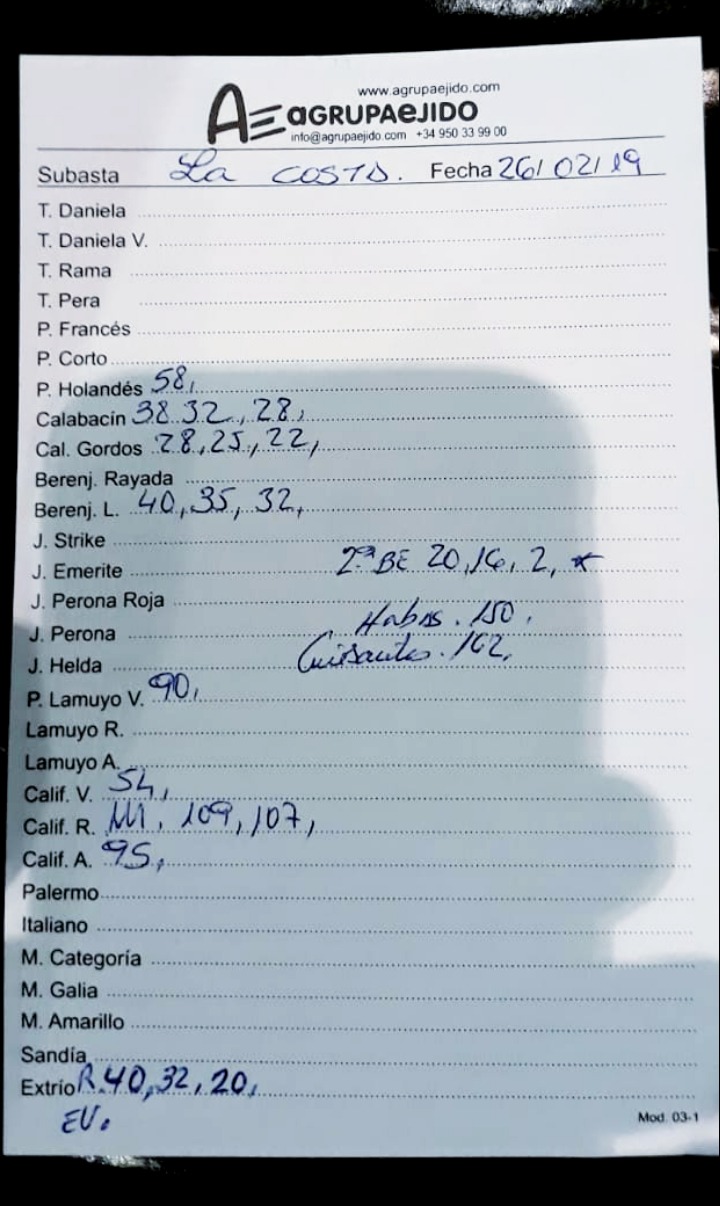 www.agrupaejido.com
AE aGRUPAeJIDO
info@agrupaejido.com +34 950 33 99 00
Subasta La COSTA. Fecha 26/02/19
T. Daniela
T. Daniela V.
T. Rama
T. Pera
P. Francés
P. Corto
P. Holandés 58,
Calabacín 38 32, 28,
Cal. Gordos 28, 25, 22,
Berenj. Rayada
Berenj. L. 40, 35, 32,
J. Strike
J. Emerite 2ª BE 20, 16, 2, *
J. Perona Roja
J. Perona Habas. 150.
J. Helda Guisantes. 162.
P. Lamuyo V. 90,
Lamuyo R.
Lamuyo A.
Calif. V. 54,
Calif. R. 111, 109, 107,
Calif. A. 95,
Palermo
Italiano
M. Categoría
M. Galia
M. Amarillo
Sandía
Extrío R. 40, 32, 20,
EV.
Mod. 03-1